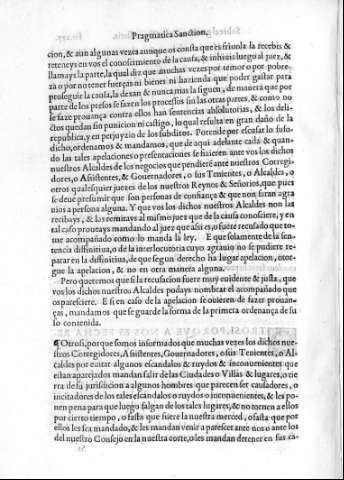 Pragmatica Sanction.
cion, & aun algunas vezes aunque os consta que es friuola la recebis &
reteneys en vos el conoscimiento de la causa, & inhibis luego al juez, &
llamays la parte, la qual diz que muchas vezes por temor o por pobre-
za o por no tener fuerças ni bienes ni hazienda que poder gastar para
proseguir la causa, la dexan & nunca mas la siguen, de manera que por
parte de los presos se fazen los processos sin las otras partes, & como no
se faze prouança contra ellos han sentencias absolutorias, & los deli-
ctos quedan sin punicion ni castigo, lo qual resulta en gran daño de la
republica, y en perjuyzio de los subditos. Porende por escusar lo suso-
dicho, ordenamos & mandamos, que de aqui adelante cada & quan-
do las tales apelaciones o presentaciones se hizieren ante vos los dichos
nuestros Alcaldes de los negocios que pendieren ante nuestros Corregi-
dores, o Asistentes, & Gouernadores, o sus Tenientes, o Alcaldes, o
otros qualesquier juezes de los nuestros Reynos & Señorios, que pues
se deue presumir que son personas de confiança & que non faran agra
uios a persona alguna. Y que vos los dichos nuestros Alcaldes non las
recibays, & las remitays al mismo juez que de la causa conosciere, y en
tal caso proueays mandando al juez que assi es, o fuere recusado que to-
me acompañado como lo manda la ley. E que solamente de la sen-
tencia diffinitiua, o de la interlocutoria cuyo agrauio no se pudiere re-
parar en la diffinitiua, de que segun derecho ha lugar apelacion, otor-
gue la apelacion, & no en otra manera alguna.
Pero queremos que si la recusacion fuere muy euidente & justa, que
vos los dichos nuestros Alcaldes podays nombrar el acompañado que
os paresciere. E si en caso de la apelacion se ouieren de fazer prouan-
ças, mandamos que se guarde de la forma de la primera ordenança de su
so contenida.
¶ Otrosi, porque somos informados que muchas vezes los dichos nue-
stros Corregidores, Asistentes, Gouernadores, o sus Tenientes, o Al-
caldes por euitar algunos escandalos & ruydos & inconuenientes que
estan aparejados mandan salir de las Ciudades o Villas & lugares, o tie
rra de su jurisdicion a algunos hombres que parecen ser causadores, o
incitadores de los tales escandalos o ruydos o inconuenientes, & les po
nen pena para que luego salgan de los tales lugares, & no tornen a ellos
por cierto tiempo, o fasta que fuere la nuestra merced, o fasta que por
ellos les sea mandado, & les mandan venir a parescer ante nos o ante los
del nuestro Consejo en la nuestra corte, o les mandan detener en sus ca-